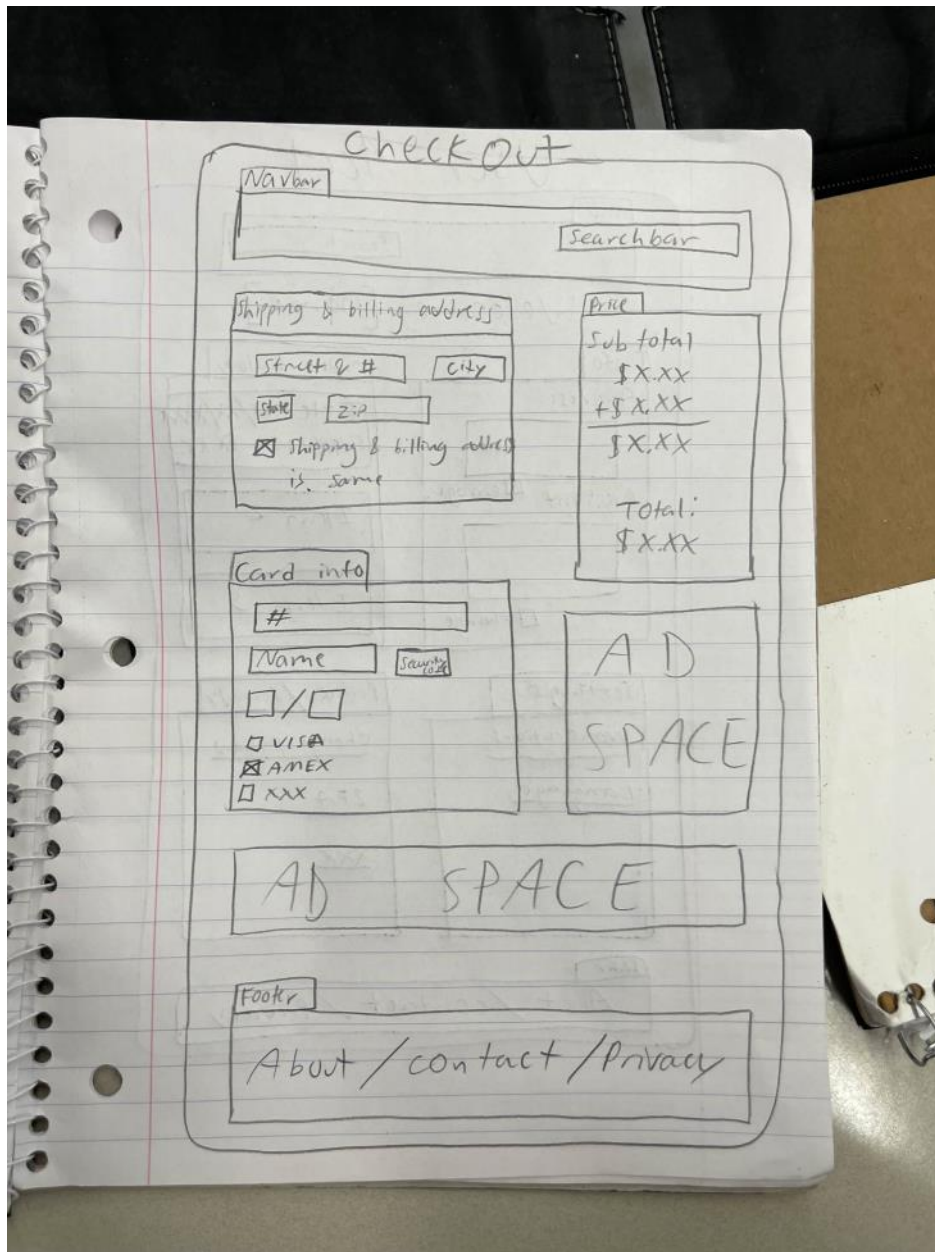 Check Out
Navbar
Searchbar
Shipping & billing address
Street & #
City
State
Zip
☒ Shipping & billing address
is same
Price
Sub total
$X.XX
+$X.XX
$X.XX
Total:
$X.XX
Card info
#
Name
Security code
/
☐ VISA
☒ AMEX
☐ XXX
AD
SPACE
AD SPACE
Footer
About / contact / Privacy